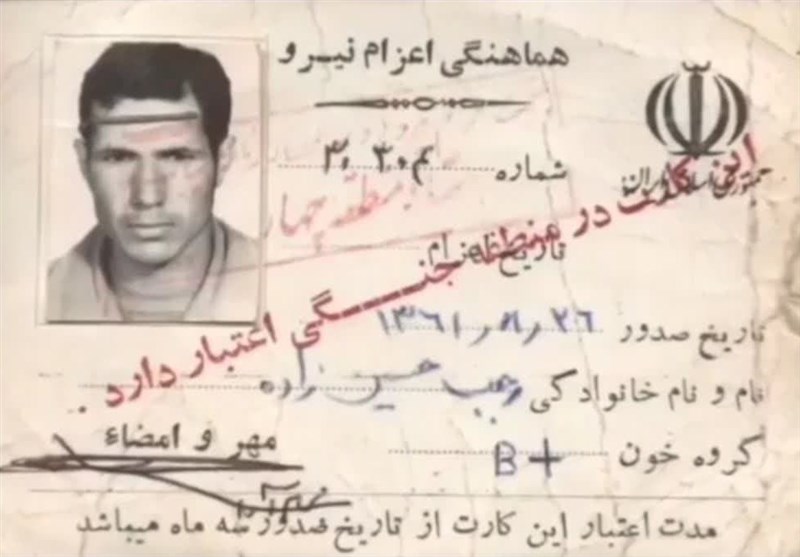 هماهنگی اعزام نیرو
جمهوری اسلامی ایران
شماره
منطقه چهار
تاریخ اعزام
این کارت در منطقه جنگی اعتبار دارد.
تاریخ صدور ۱۳۶۱/۸/۲۶
نام و نام خانوادگی رجب حسین زاده
گروه خون B+
مهر و امضاء
مدت اعتبار این کارت از تاریخ صدور سه ماه میباشد